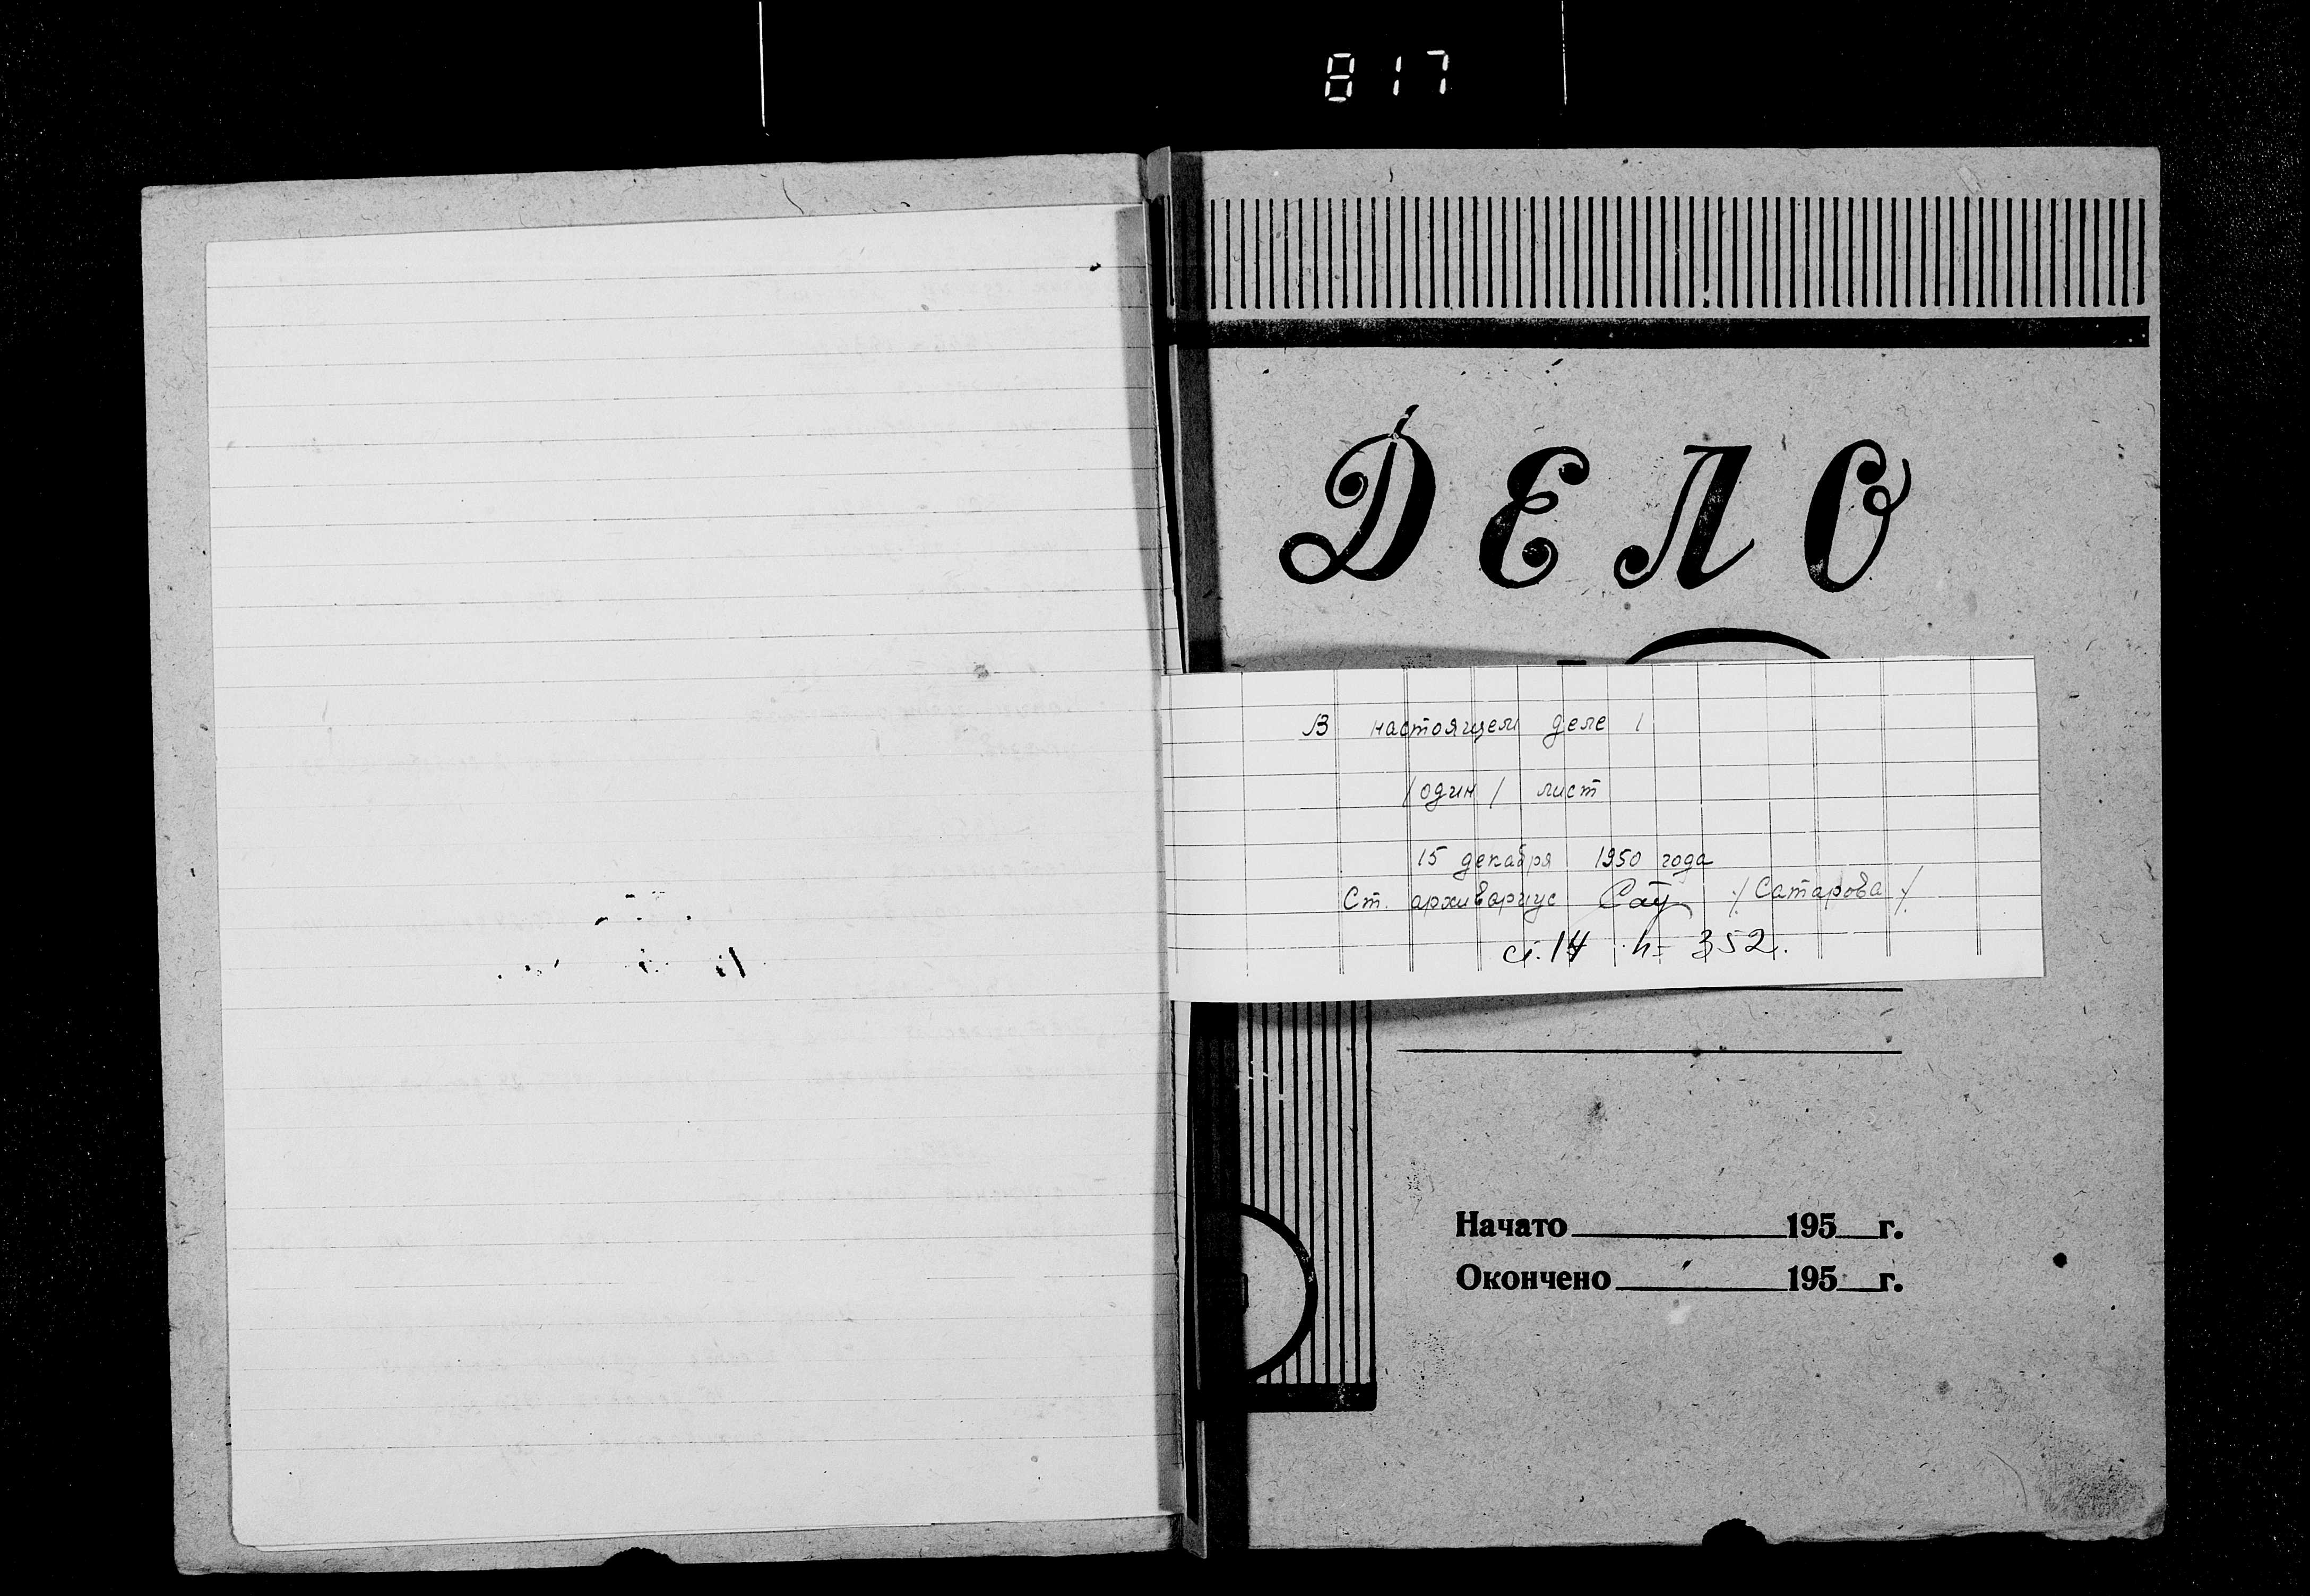 817
ДЕЛО
В настоящем деле 1
/один/ лист
15 декабря 1950 года
Ст. архивариус Сат /Сатарова/
352
Начато 195 г.
Окончено 195 г.